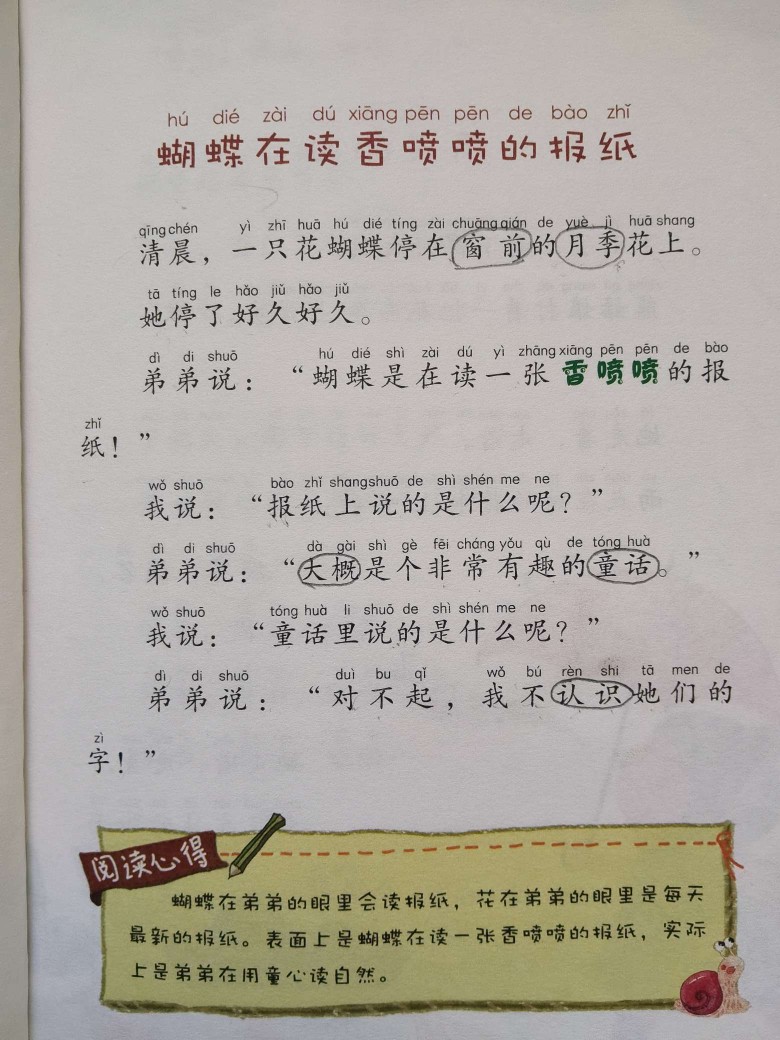 hú dié zài dú xiāng pēn pēn de bào zhǐ
蝴蝶在读香喷喷的报纸
qīng chén yì zhī huā hú dié tíng zài chuāng qián de yuè jì huā shang
清晨，一只花蝴蝶停在窗前的月季花上。
tā tíng le hǎo jiǔ hǎo jiǔ
她停了好久好久。
dì di shuō hú dié shì zài dú yì zhāng xiāng pēn pēn de bào
弟弟说：“蝴蝶是在读一张香喷喷的报
zhǐ
纸！”
wǒ shuō bào zhǐ shang shuō de shì shén me ne
我说：“报纸上说的是什么呢？”
dì di shuō dà gài shì gè fēi cháng yǒu qù de tóng huà
弟弟说：“大概是个非常有趣的童话。”
wǒ shuō tóng huà li shuō de shì shén me ne
我说：“童话里说的是什么呢？”
dì di shuō duì bu qǐ wǒ bú rèn shi tā men de
弟弟说：“对不起，我不认识她们的
zì
字！”
阅读心得
蝴蝶在弟弟的眼里会读报纸，花在弟弟的眼里是每天
最新的报纸。表面上是蝴蝶在读一张香喷喷的报纸，实际
上是弟弟在用童心读自然。